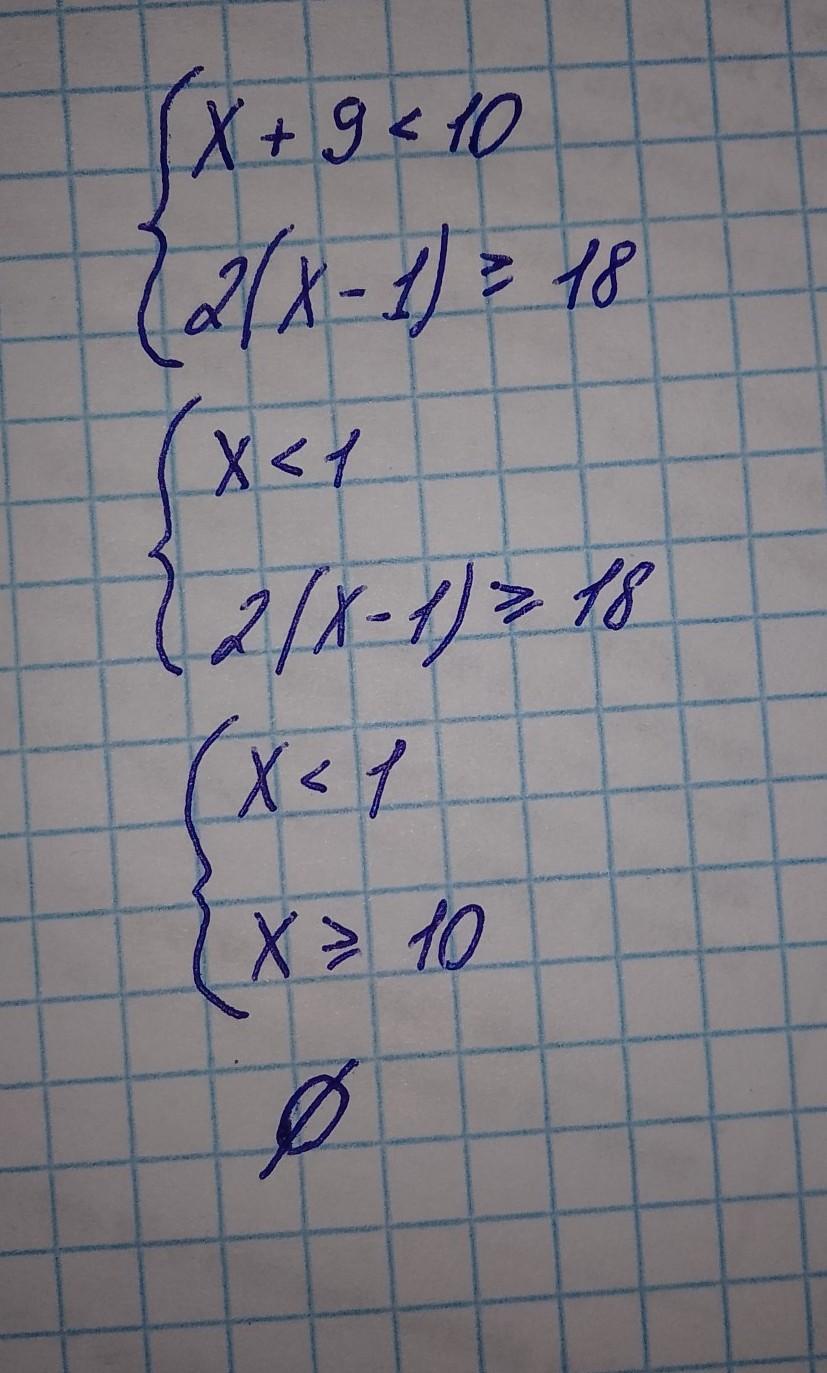 x + 9 < 10
2(x - 1) ≥ 18
x < 1
2(x - 1) ≥ 18
x < 1
x ≥ 10
∅